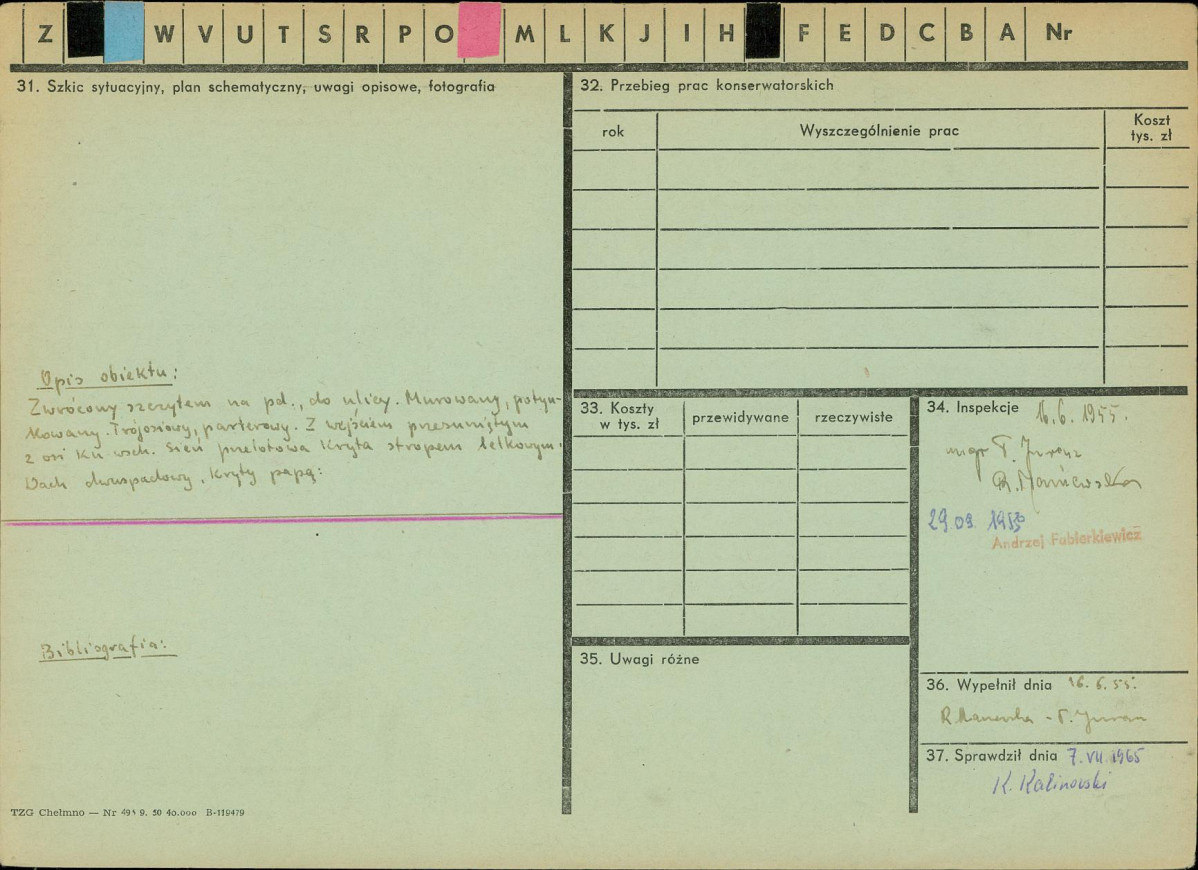 Z W V U T S R P O M L K J I H F E D C B A Nr
31. Szkic sytuacyjny, plan schematyczny, uwagi opisowe, fotografia
Opis obiektu:
Zwrócony szczytem na pd., do ulicy. Murowany, potyn-
kowany. Trójosiowy, parterowy. Z wejściem przesuniętym
z osi ku wsch. Sień przelotowa kryta stropem belkowym.
Dach dwuspadowy, kryty papą.
Bibliografia:
TZG Chełmno — Nr 9. 50 40.000 B-119479
32. Przebieg prac konserwatorskich
rok Wyszczególnienie prac Koszt
tys. zł
33. Koszty
w tys. zł przewidywane rzeczywiste
35. Uwagi różne
34. Inspekcje 16.6.1955.
mgr T.
R.
29.09.
Andrzej Fabierkiewicz
36. Wypełnił dnia 16.6.55.
R. - T.
37. Sprawdził dnia 7.VII.1965
K. Kalinowski